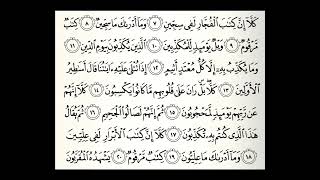 كَلَّآ إِنَّ كِتَٰبَ ٱلْفُجَّارِ لَفِى سِجِّينٍ ٧ وَمَآ أَدْرَىٰكَ مَا سِجِّينٌ ٨ كِتَٰبٌ
مَّرْقُومٌ ٩ وَيْلٌ يَوْمَئِذٍ لِّلْمُكَذِّبِينَ ١٠ ٱلَّذِينَ يُكَذِّبُونَ بِيَوْمِ ٱلدِّينِ ١١
وَمَا يُكَذِّبُ بِهِۦٓ إِلَّا كُلُّ مُعْتَدٍ أَثِيمٍ ١٢ إِذَا تُتْلَىٰ عَلَيْهِ ءَايَٰتُنَا قَالَ أَسَٰطِيرُ
ٱلْأَوَّلِينَ ١٣ كَلَّا بَلْ رَانَ عَلَىٰ قُلُوبِهِم مَّا كَانُوا۟ يَكْسِبُونَ ١٤ كَلَّآ إِنَّهُمْ
عَن رَّبِّهِمْ يَوْمَئِذٍ لَّمَحْجُوبُونَ ١٥ ثُمَّ إِنَّهُمْ لَصَالُوا۟ ٱلْجَحِيمِ ١٦ ثُمَّ يُقَالُ
هَٰذَا ٱلَّذِى كُنتُم بِهِۦ تُكَذِّبُونَ ١٧ كَلَّآ إِنَّ كِتَٰبَ ٱلْأَبْرَارِ لَفِى عِلِّيِّينَ
١٨ وَمَآ أَدْرَىٰكَ مَا عِلِّيُّونَ ١٩ كِتَٰبٌ مَّرْقُومٌ ٢٠ يَشْهَدُهُ ٱلْمُقَرَّبُونَ